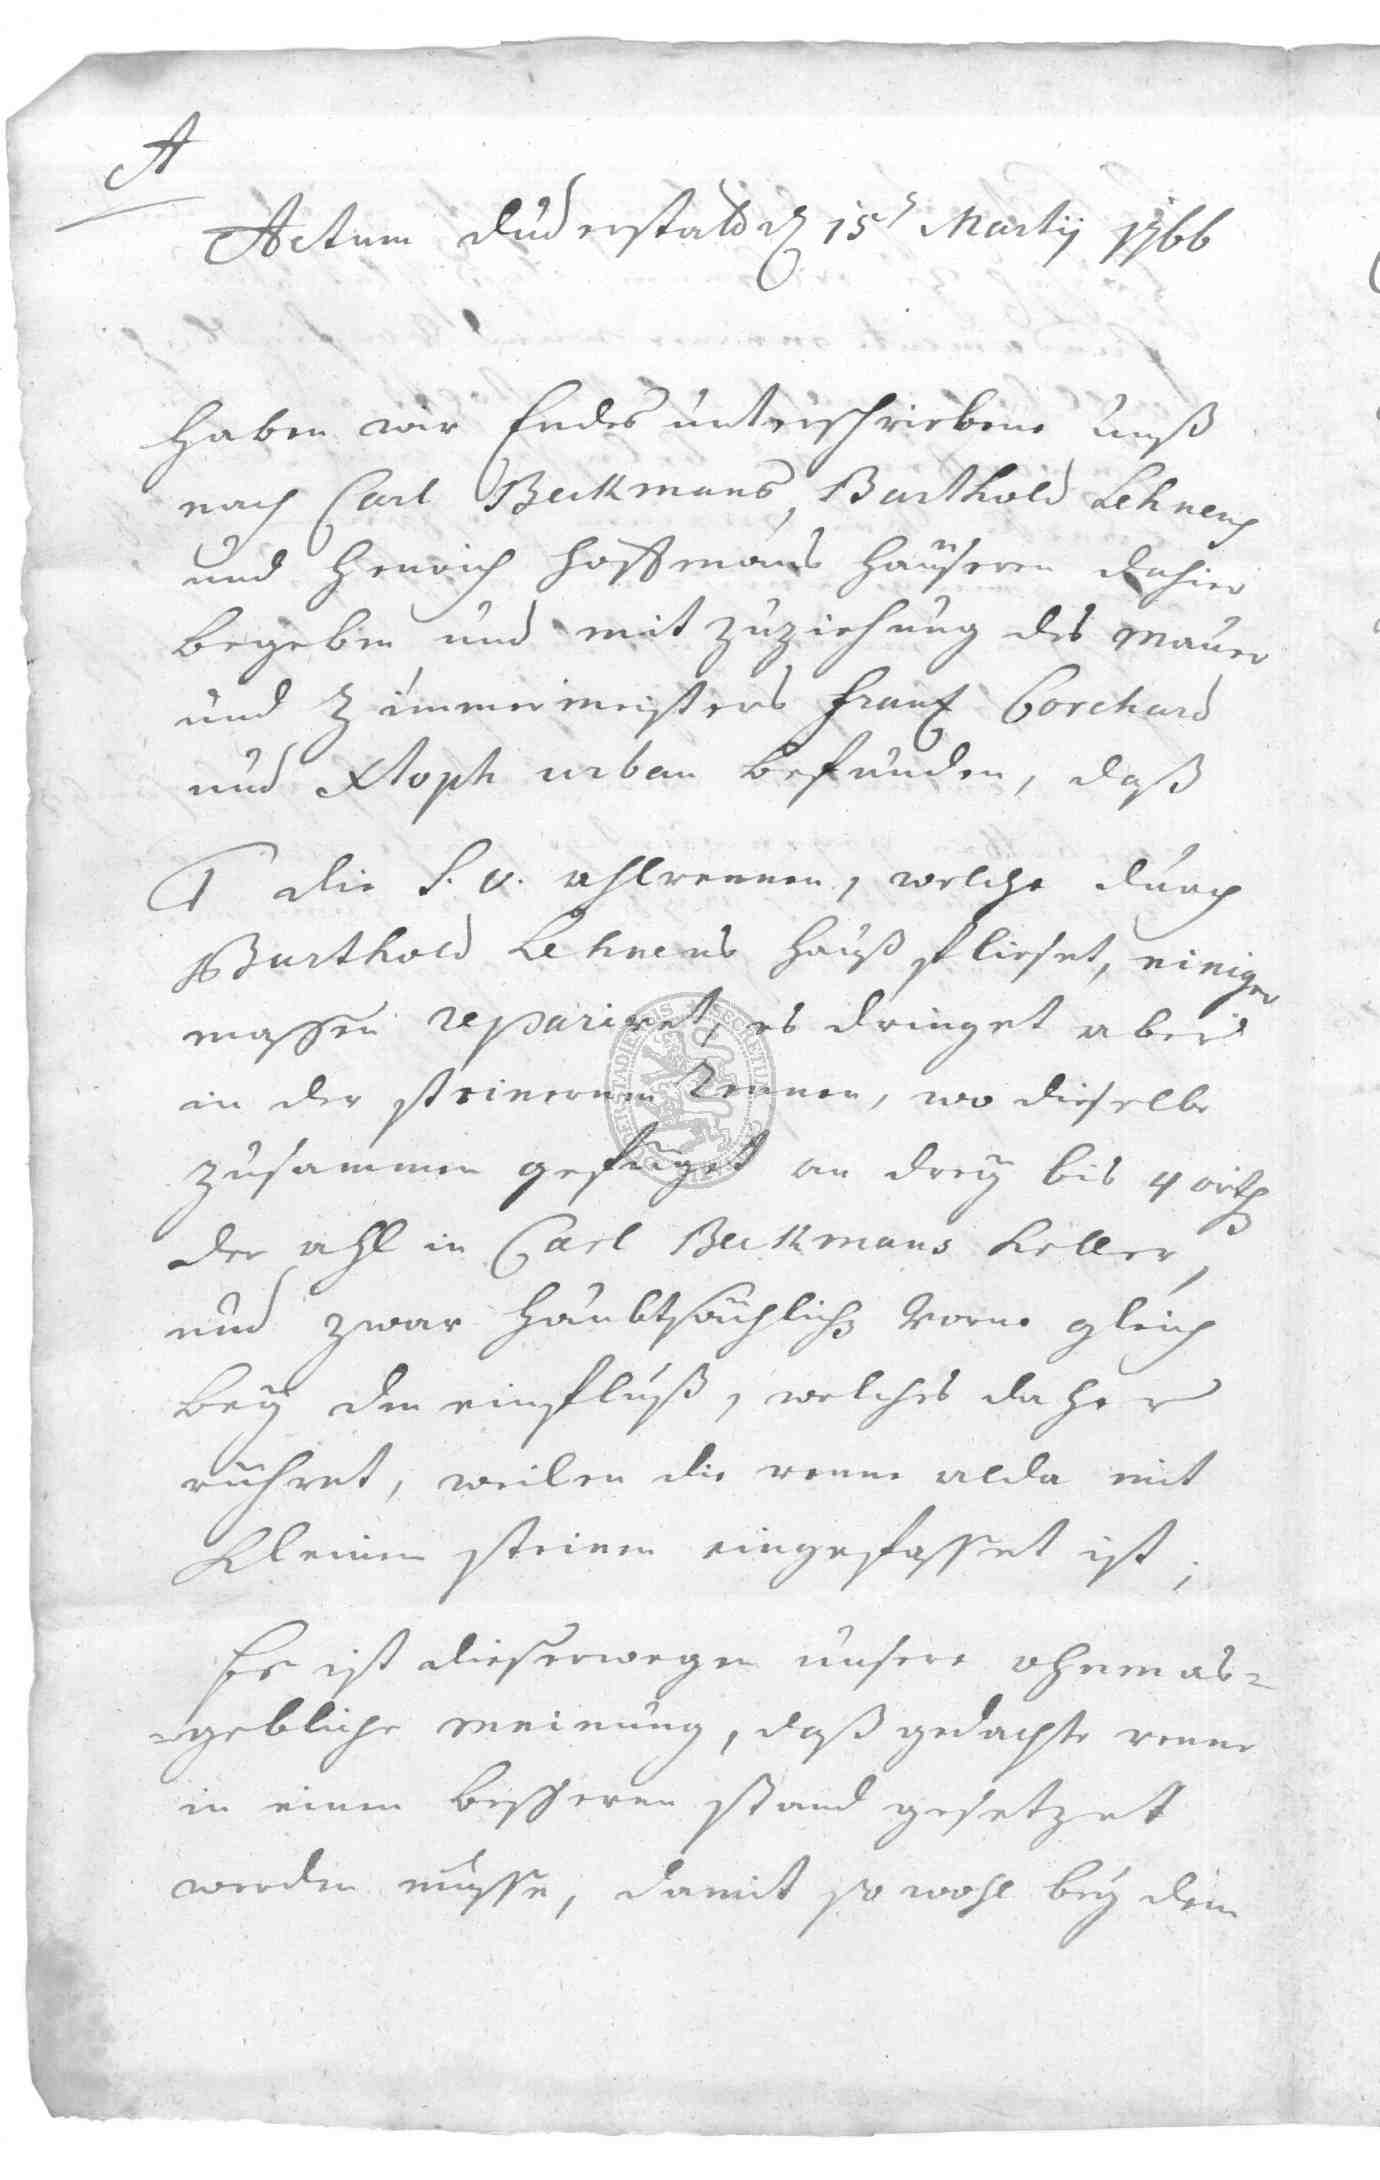 A
Actum Duderstatd d 15t Martij 1766
Haben wir Endes unterschriebene unß
nach Carl Beckmans, Barthold Lehnens
und Henrich Hoffmans Haüseren dahier
begeben und mit zuziehung des Maurer
und Zimmermeisters Frantz Borchard
und Xtoph urban befunden, daß
1 die S. v. ahlrennen, welche durch
Barthold Lehnens Hauß flieset, einiger
massen repariret, es dringet aber
in der steinernen Rennen, wo dieselbe
zusammen gefüget an drey bis 4 orth
der ahl in Carl Beckmans Keller,
und zwar haubtsächlich vorne gleich
bey den einfluß, welches daher
rühret, weilen die renne alda mit
kleinen steinen eingefasset ist,
Es ist dieserwegen unsere ohnmas=
=gebliche meinung, daß gedachte renne
in einen besseren stand gesetzet
werden musse, damit so wohl bey dem